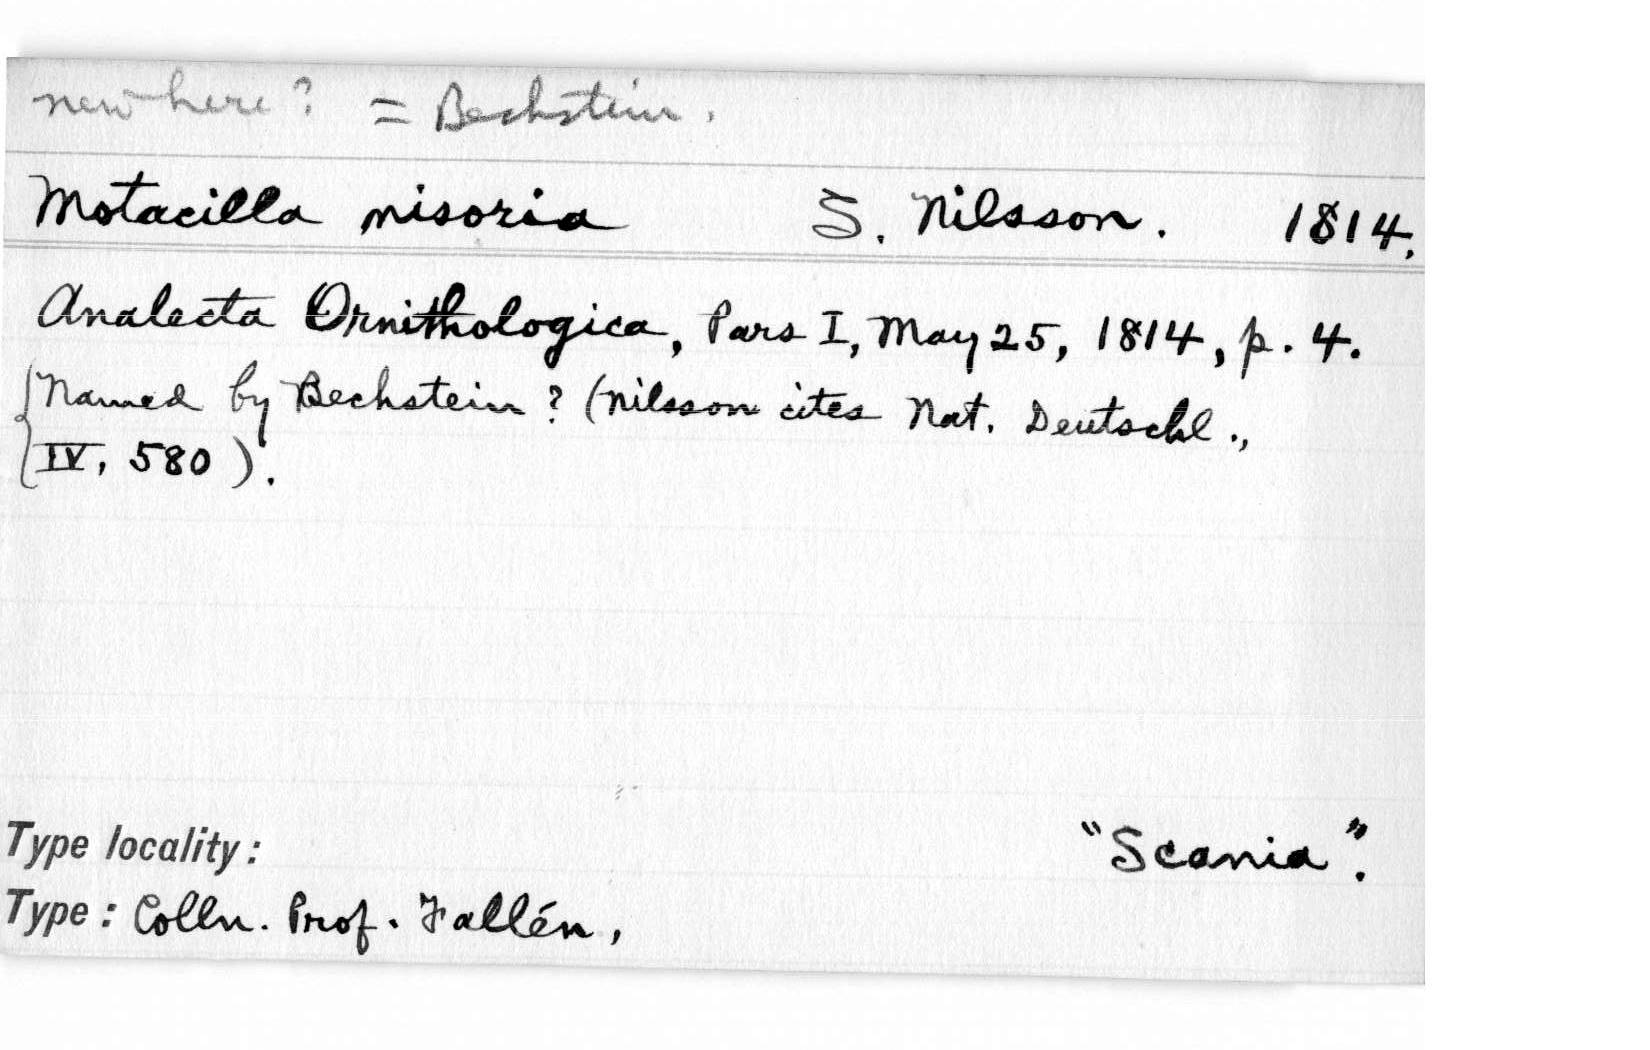 new here? = Bechstein.
Motacilla nisoria S. Nilsson. 1814.
Analecta Ornithologica, Pars I, May 25, 1814, p. 4.
{Named by Bechstein? (Nilsson cites Nat. Deutschl.,
IV, 580).
Type locality: "Scania".
Type: Colln. Prof. Fallén,